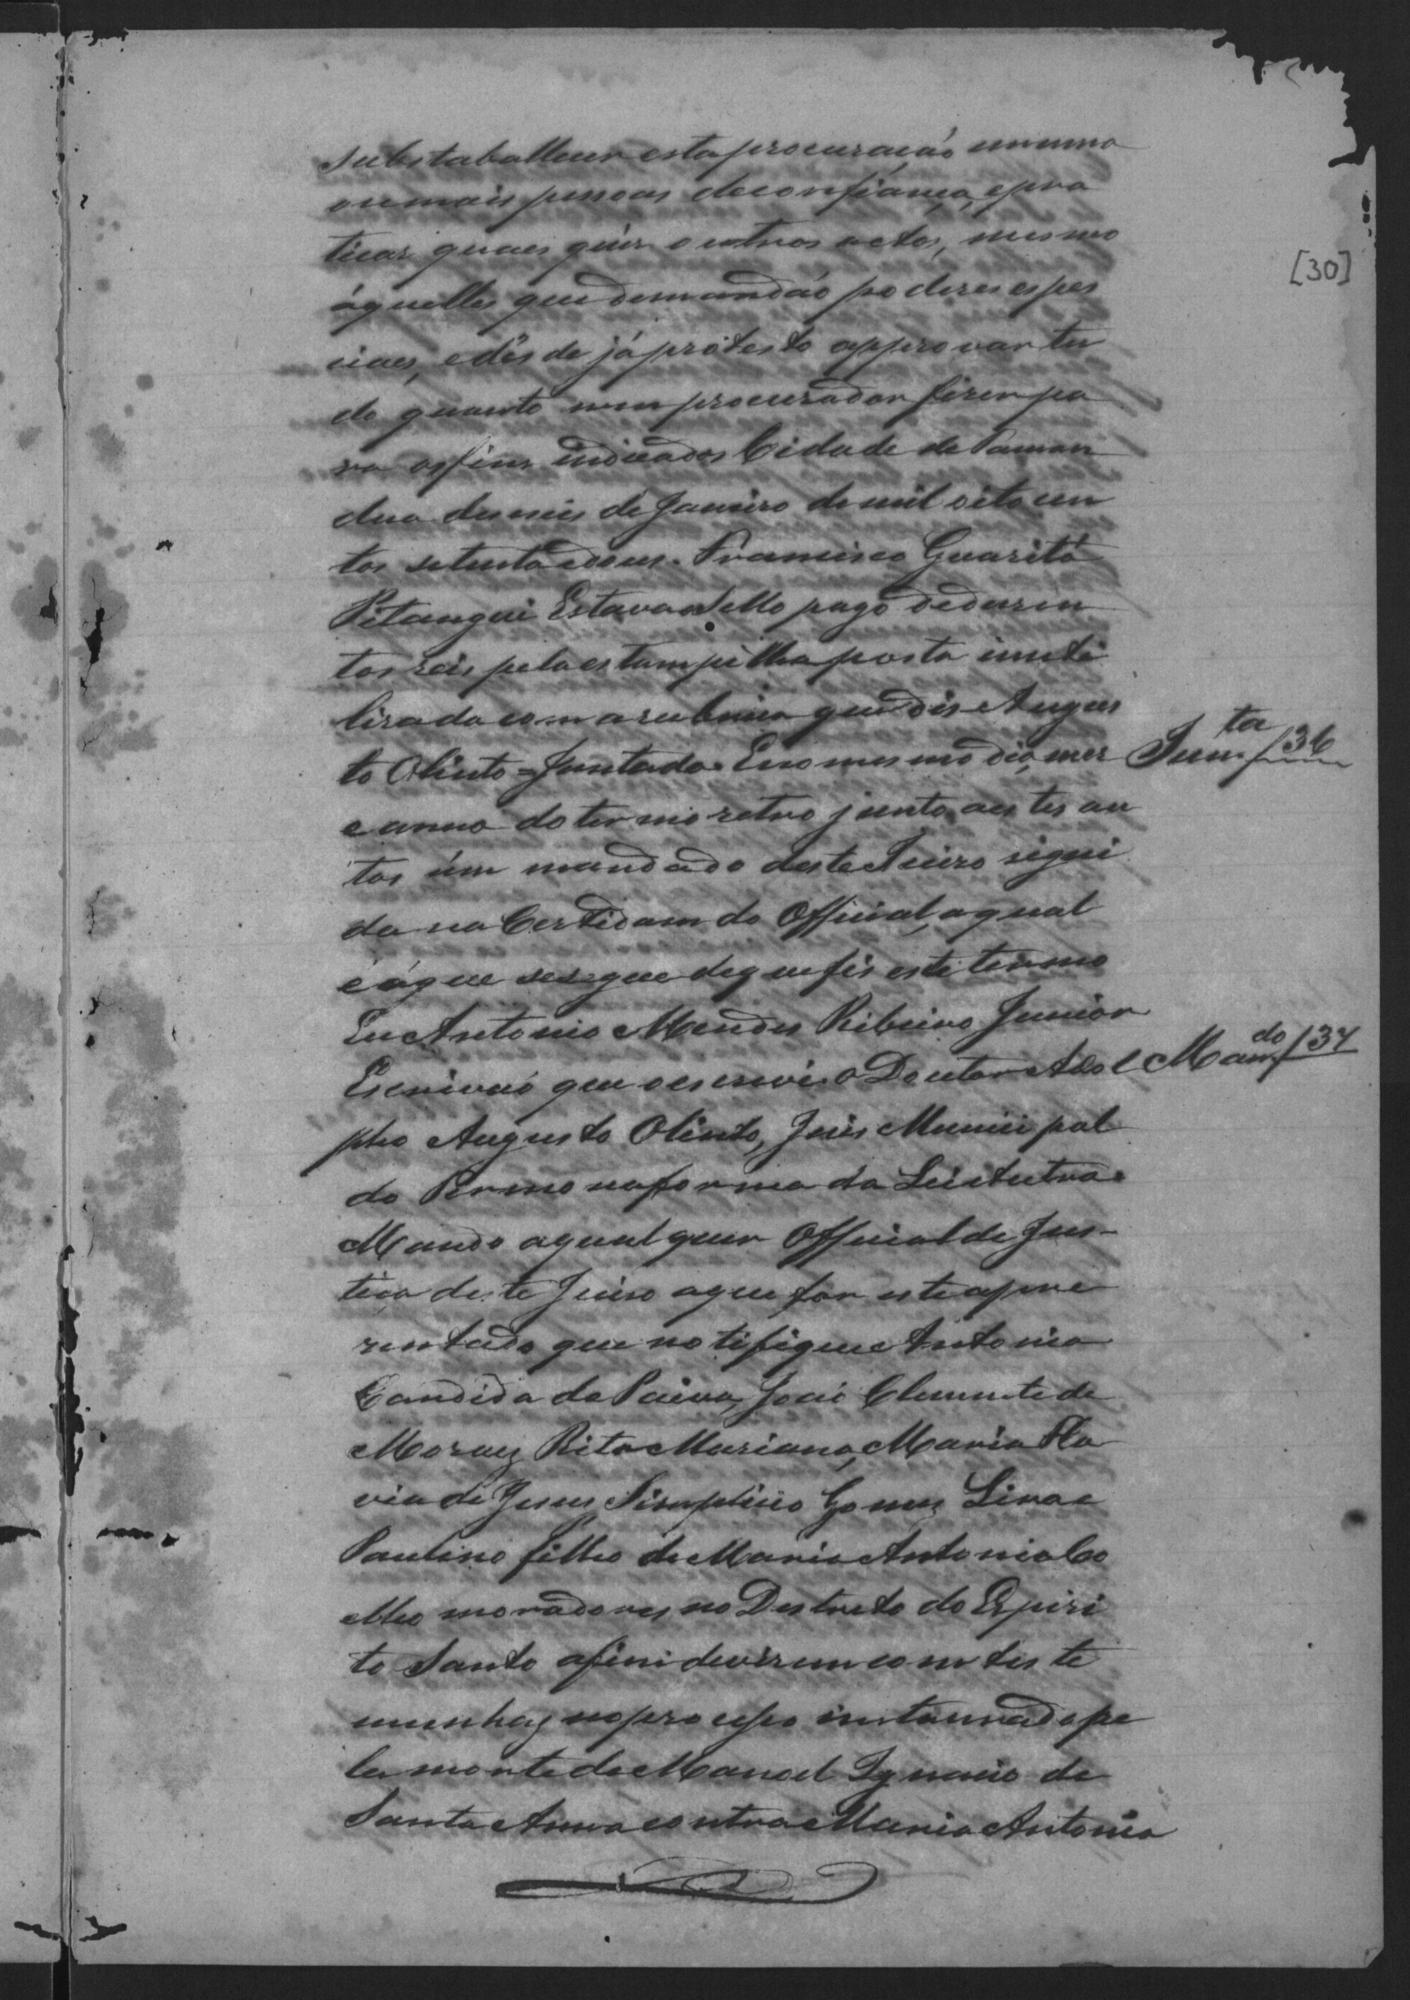 substaballeser esta procuração em uma
ou mais pessoas de confiança, e pra
ticar quaes quer outros actos, mesmo
áquelles que demandão poderes espes
[30]
ciaes, e dês de já protesto approvar tu
do quanto meu procurador fizer pa
ra os fins indicados Cidade de Taman
dua de seis de Janeiro de mil oito cen
tos setenta e dous. Francisco Guaritá
Pitangui Estava o Sello pago de duzen
tos reis pela estampilha posta inuti
lizada com a rubrica que dis Augus
to Olinto = Juntada. E no mesmo dia, mez
Jun.ta/36
e anno do termo retro junto aestes au
tos úm mandado deste Juizo sigui
da na Certidam do Official, a qual
é áque se segue de que fis este termo
Eu Antonio Mendes Ribeiro Junior
Escrivaõ que o escrevi. O Doutor Adol
Man.do/37
pho Augusto Olinto, Juis Municipal
do Termo na forma da Lei et cetra.
Mando a qual quer Official de Jus-
tiça deste Juiso a que for este apre
zentado que notifique Antonia
Candida de Paiva, José Clemente de
Moraes Rita Mariana, Maria Fla
via de Jesus, Simplicio Gomes Lima e
Paulino filho de Maria Antonia Co
elho moradores no Destreto do Espiri
to Santo afim de virem com tes te
munhas no processo instaurado pe
la morte de Manoel Ignacio de
Santa Anna contra Maria Antonia